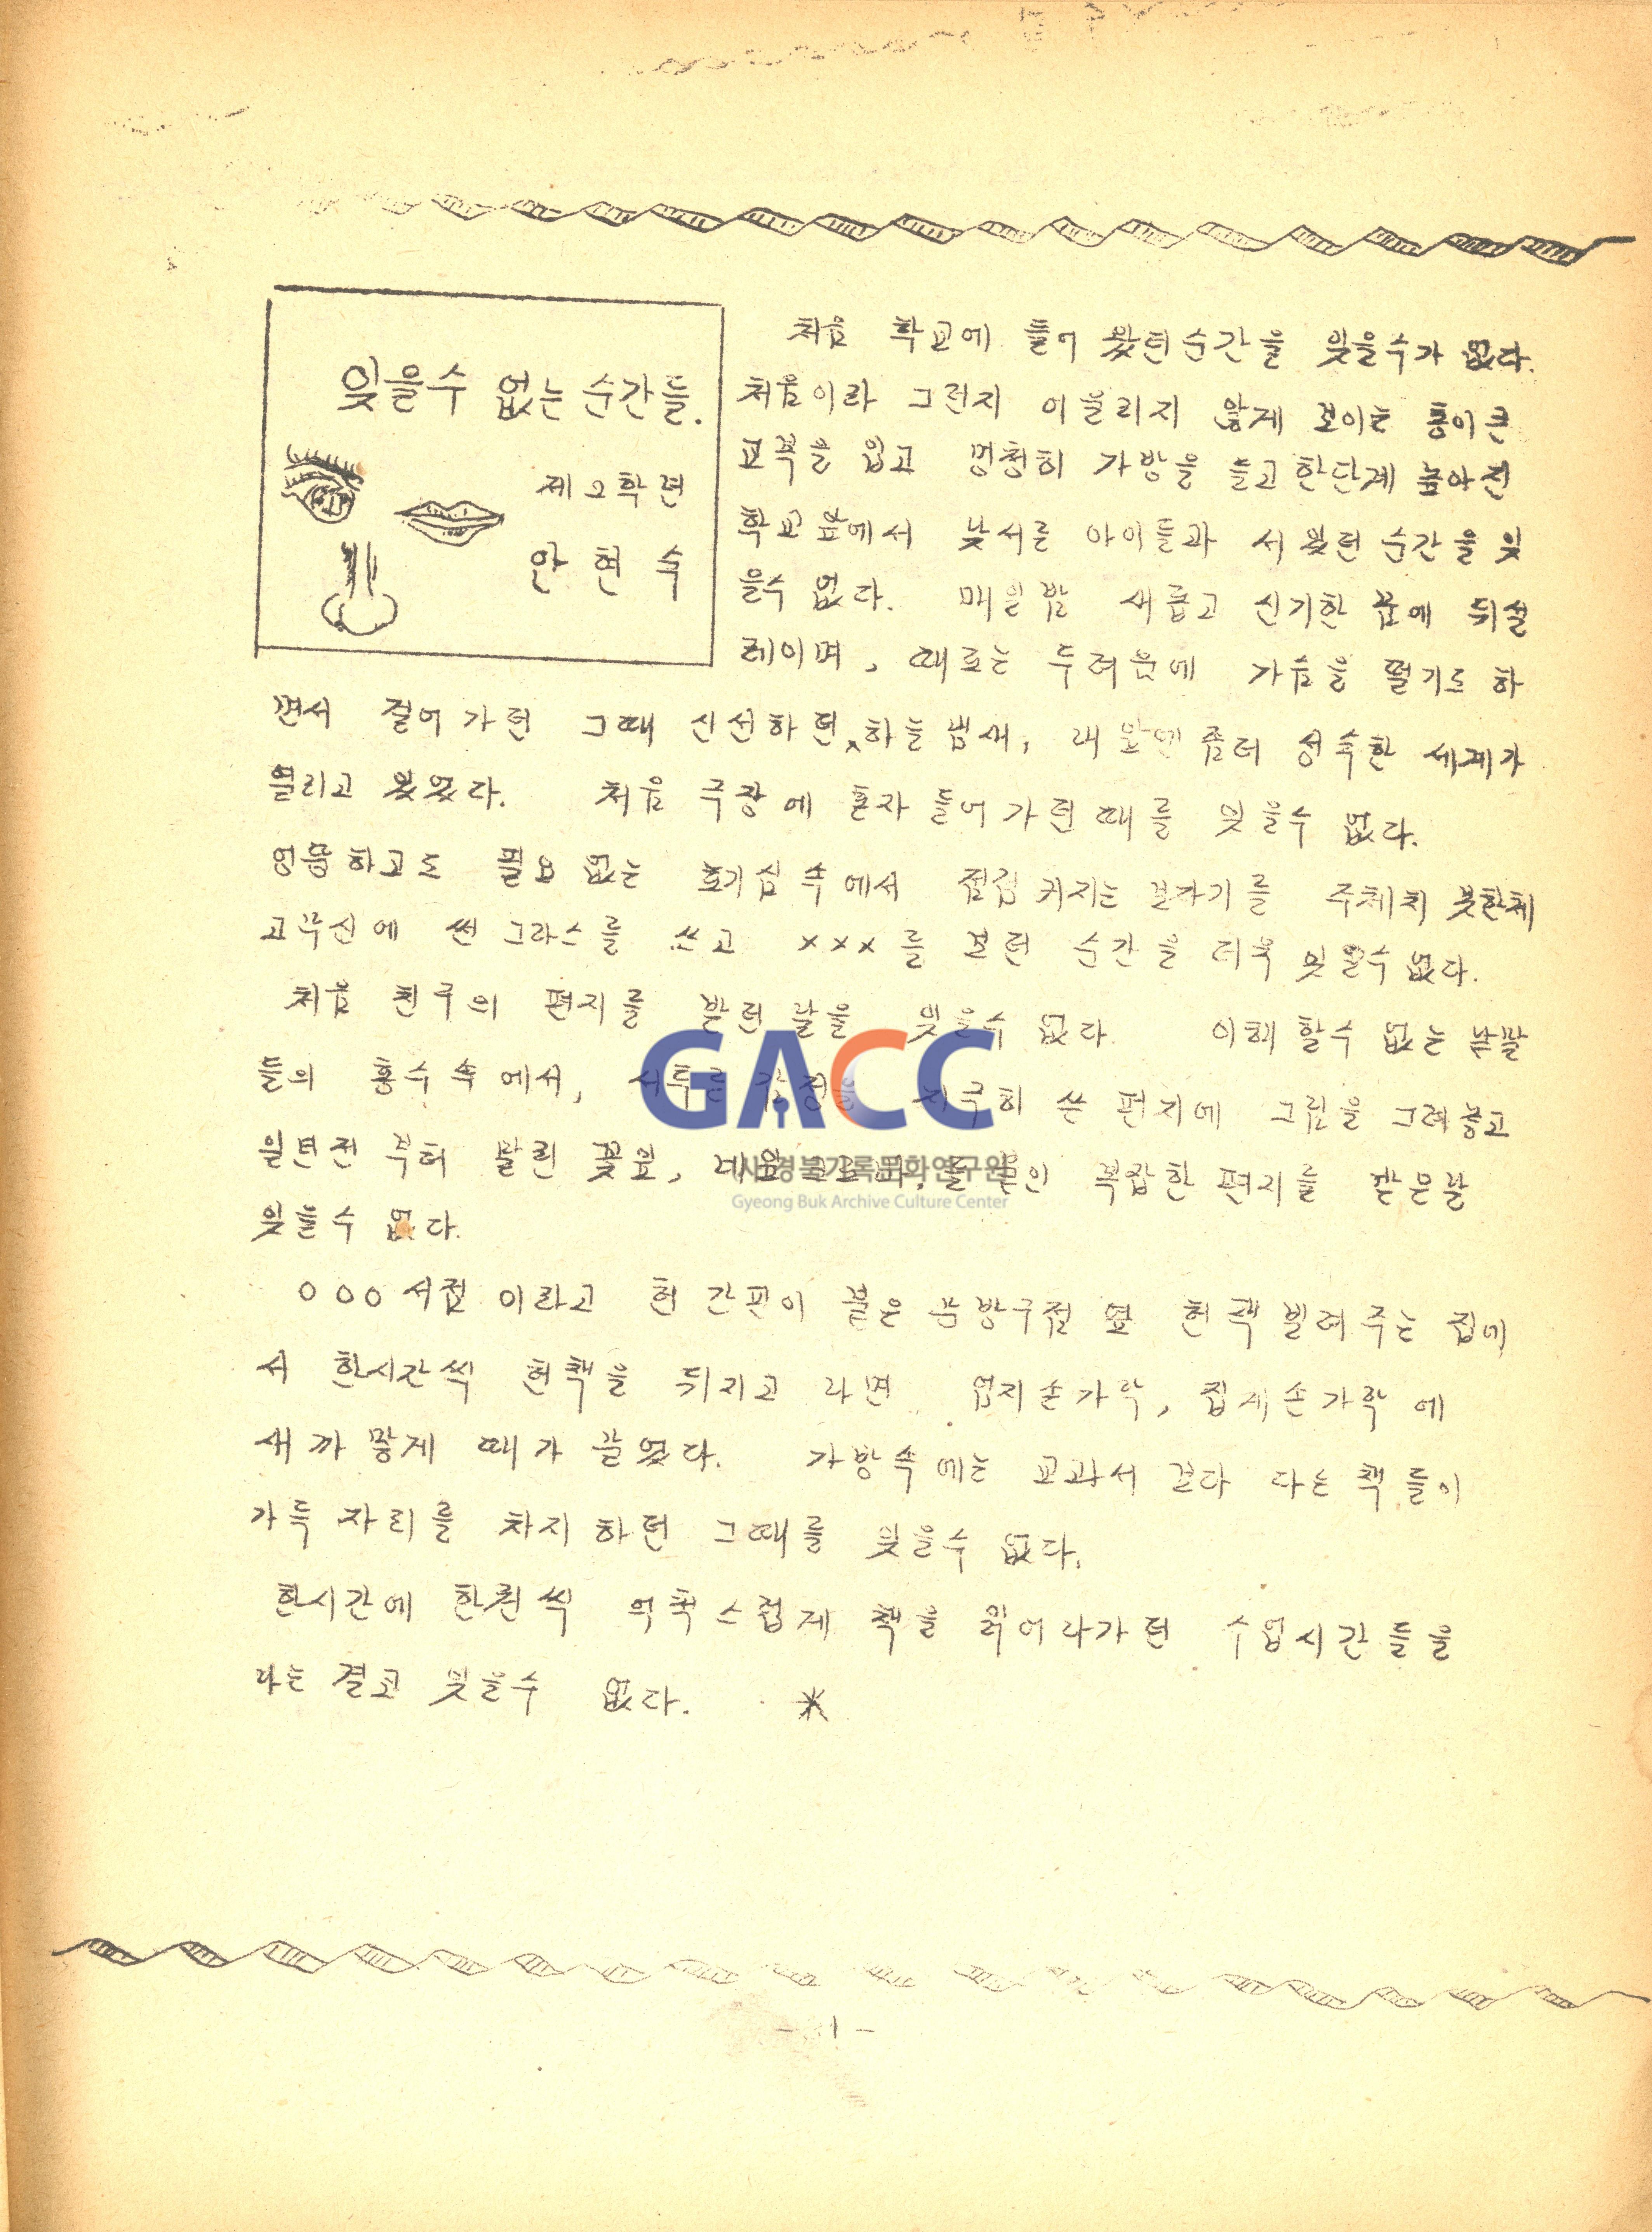 잊을수 없는 순간들.
제2학년
안 현 숙
처음 학교에 들어 왔던순간을 잊을수가 없다.
처음이라 그런지 어울리지 않게 보이는 통이큰
교복을 입고 멍청히 가방을 들고 한단계 높아진
학교 앞에서 낯서른 아이들과 서 있던 순간을 잊
을수 없다. 매일밤 새롭고 신기한 꿈에 뒤설
레이며, 때로는 두려움에 가슴을 떨기도 하
면서 걸어가던 그때 신선하던 하늘 냄새, 내 앞엔 좀더 성숙한 세계가
열리고 있었다. 처음 극장에 혼자 들어가던때를 잊을수 없다.
엉뚱하고도 필요 없는 호기심 속에서 점점 커지는 보자기를 주체치 못한체
고무신에 썬 그라스를 쓰고 xxx를 보던 순간을 더욱 잊을수 없다.
처음 친구의 편지를 받던 날을 잊을수 없다. 이해 할수 없는 낱말
들의 홍수 속에서, 서투른 감정을 지극히 쓴 편지에 그림을 그려놓고
일년전 부터 말린 꽃잎, 네잎 크로바, 들 의 복잡한 편지를 받은날
잊을수 없다.
ooo 서점 이라고 헌 간판이 붙은 문방구점 옆 헌책 빌려 주는 집에
서 한시간씩 헌책을 뒤지고 나면 엄지손가락, 집게손가락에
새까맣게 때가 끌었다. 가방속에는 교과서 보다 다른 책들이
가득 자리를 차지하던 그때를 잊을수 없다.
한시간에 한권씩 억척스럽게 책을 읽어나가던 수업시간들을
나는 결코 잊을수 없다. *
GACC
(사)경북기록문화연구원
Gyeong Buk Archive Culture Center